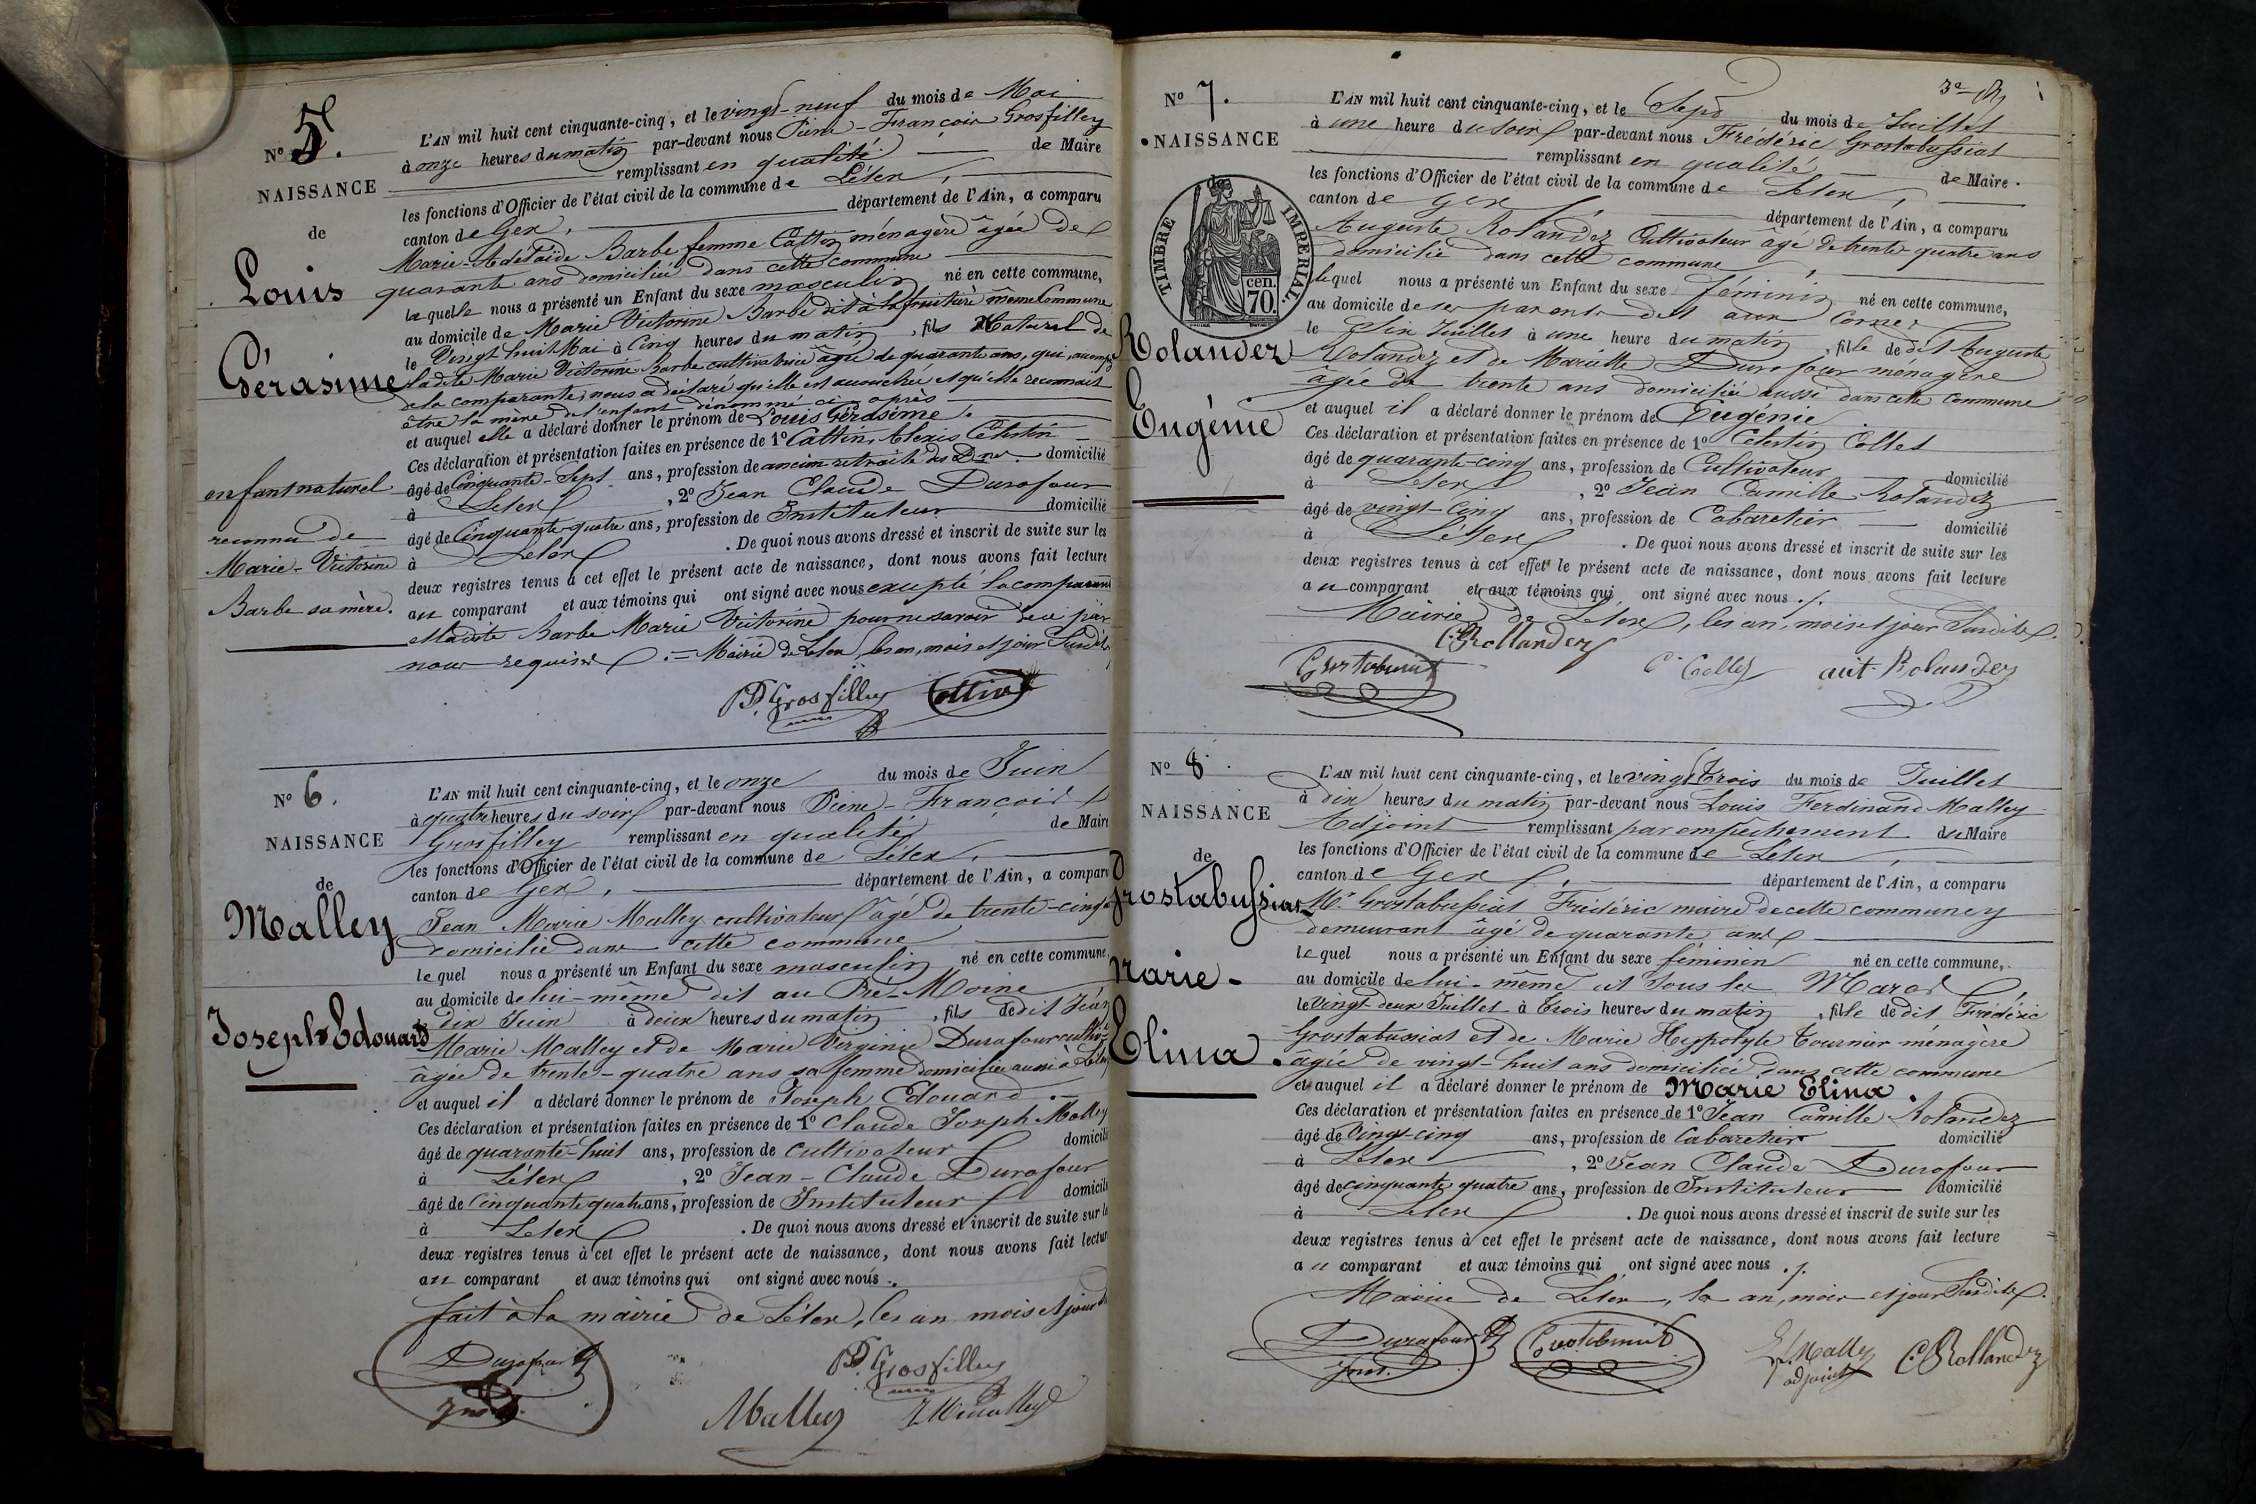 N° 5.
NAISSANCE
de
Louis
Gérasime
enfant naturel
reconnu de
Marie-Victorine
Barbe sa mère.
L'AN mil huit cent cinquante-cinq, et le vingt-neuf du mois de Mai
à onze heures du matin par-devant nous Pierre-François Grosfilley
remplissant en qualité de Maire
les fonctions d'Officier de l'état civil de la commune de Lélex,
canton de Gex, département de l'Ain, a comparu
Marie-Adélaïde Barbe femme Cattin ménagère âgée de
quarante ans domiciliée dans cette commune
laquelle nous a présenté un Enfant du sexe masculin né en cette commune,
au domicile de Marie Victorine Barbe dit à la fruitière même Commune
le Vingt huit Mai à Cinq heures du matin, fils Naturel de
ladite Marie Victorine Barbe cultivatrice âgée de quarante ans, qui, accompagnée
de la comparante, nous a déclaré qu'elle est accouchée et qu'elle reconnait
être la mère de l'enfant dénommé ci-après
et auquel elle a déclaré donner le prénom de Louis Gérasime.
Ces déclaration et présentation faites en présence de 1° Cattin, Alexis Célestin
âgé de Cinquante-Sept ans, profession de ancien retraité des domicilié
à Lélex, 2° Jean Claude Durafour
âgé de Cinquante-quatre ans, profession de Instituteur domicilié
à Lélex. De quoi nous avons dressé et inscrit de suite sur les
deux registres tenus à cet effet le présent acte de naissance, dont nous avons fait lecture
au comparant et aux témoins qui ont signé avec nous excepté la comparante
et ladite Barbe Marie Victorine pour ne savoir de ce par
nous requises. = Mairie de Lélex les an, mois et jour Susdits
P.F. Grosfilley Cattin
N° 6.
NAISSANCE
de
Malley
Joseph Edouard
L'AN mil huit cent cinquante-cinq, et le onze du mois de Juin
à quatre heures du soir par-devant nous Pierre-François
Grosfilley remplissant en qualité de Maire
les fonctions d'Officier de l'état civil de la commune de Lélex,
canton de Gex, département de l'Ain, a comparu
Jean Marie Malley cultivateur âgé de trente-cinq
domicilié dans cette commune
lequel nous a présenté un Enfant du sexe masculin né en cette commune,
au domicile de lui-même dit au Pré-Moine
le dix Juin à deux heures du matin, fils de dit Jean
Marie Malley et de Marie Virginie Durafour
âgée de trente-quatre ans sa femme domiciliée aussi à Lélex
et auquel il a déclaré donner le prénom de Joseph Edouard.
Ces déclaration et présentation faites en présence de 1° Claude Joseph Malley
âgé de quarante-huit ans, profession de cultivateur domicilié
à Lélex, 2° Jean-Claude Durafour
âgé de Cinquante quatre ans, profession de Instituteur domicilié
à Lélex. De quoi nous avons dressé et inscrit de suite sur les
deux registres tenus à cet effet le présent acte de naissance, dont nous avons fait lecture
au comparant et aux témoins qui ont signé avec nous.
fait à la mairie de Lélex, les an mois et jour
Durafour P.F. Grosfilley
Malley
N° 7.
NAISSANCE
TIMBRE IMPERIAL.
cen. 70.
Rolandez
Eugénie
L'AN mil huit cent cinquante-cinq, et le Sept du mois de Juillet
à une heure du soir par-devant nous Frédéric Grostabussiat
remplissant en qualité de Maire
les fonctions d'Officier de l'état civil de la commune de Lélex,
canton de Gex, département de l'Ain, a comparu
Auguste Rolandez Cultivateur âgé de trente-quatre ans
domicilié dans cette commune,
lequel nous a présenté un Enfant du sexe féminin né en cette commune,
au domicile de ses parents dit aux Cornes
le Six Juillet à une heure du matin, fille de dit Auguste
Rolandez et de Mariette Durafour ménagère
âgée de trente ans domiciliée aussi dans cette commune
et auquel il a déclaré donner le prénom de Eugénie
Ces déclaration et présentation faites en présence de 1° Célestin Collet
âgé de quarante-cinq ans, profession de Cultivateur domicilié
à Lélex, 2° Jean Camille Rolandez
âgé de vingt-cinq ans, profession de Cabaretier domicilié
à Lélex. De quoi nous avons dressé et inscrit de suite sur les
deux registres tenus à cet effet le présent acte de naissance, dont nous avons fait lecture
au comparant et aux témoins qui ont signé avec nous ./.
Mairie de Lélex, les an, mois et jour Susdits.
C. Rollandez
Grostabussiat C. Collet aut. Rolandez
N° 8.
NAISSANCE
de
Grostabussiat
Marie-
Elina.
L'AN mil huit cent cinquante-cinq, et le vingt trois du mois de Juillet
à dix heures du matin par-devant nous Louis Ferdinand Malley
Adjoint remplissant par empêchement du Maire
les fonctions d'Officier de l'état civil de la commune de Lélex,
canton de Gex, département de l'Ain, a comparu
Mr. Grostabussiat Frédéric maire de cette commune y
demeurant âgé de quarante ans
lequel nous a présenté un Enfant du sexe féminin né en cette commune,
au domicile de lui-même dit Sous les Marod
le Vingt-deux Juillet à trois heures du matin, fille de dit Frédéric
Grostabussiat et de Marie Hyppolyte Tournier ménagère
âgée de vingt-huit ans domiciliée dans cette commune
et auquel il a déclaré donner le prénom de Marie Elina.
Ces déclaration et présentation faites en présence de 1° Jean Camille Rolandez
âgé de Vingt-cinq ans, profession de Cabaretier domicilié
à Lélex, 2° Jean Claude Durafour
âgé de cinquante quatre ans, profession de Instituteur domicilié
à Lélex. De quoi nous avons dressé et inscrit de suite sur les
deux registres tenus à cet effet le présent acte de naissance, dont nous avons fait lecture
au comparant et aux témoins qui ont signé avec nous ./.
Mairie de Lélex, les an, mois et jour Susdits.
Durafour Grostabussiat Malley C. Rollandez
adjoint